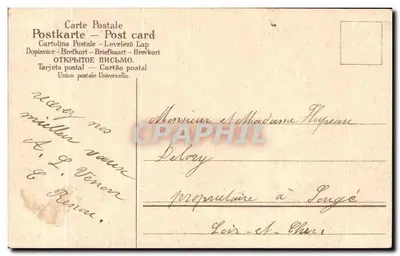 Carte Postale
Postkarte — Post card
Cartolina Postale - Levelező Lap
Dopisnice - Brefkort - Briefkaart - Brevkort
ОТКРЫТОЕ ПИСЬМО.
Tarjeta postal — Cartão postal
Union postale Universelle.
nos
meilleurs vœux
A. L. Venon
C. Renou
Monsieur et Madame
CPARPHIL
Delory
propriétaire à Songé
Loir-et-Cher